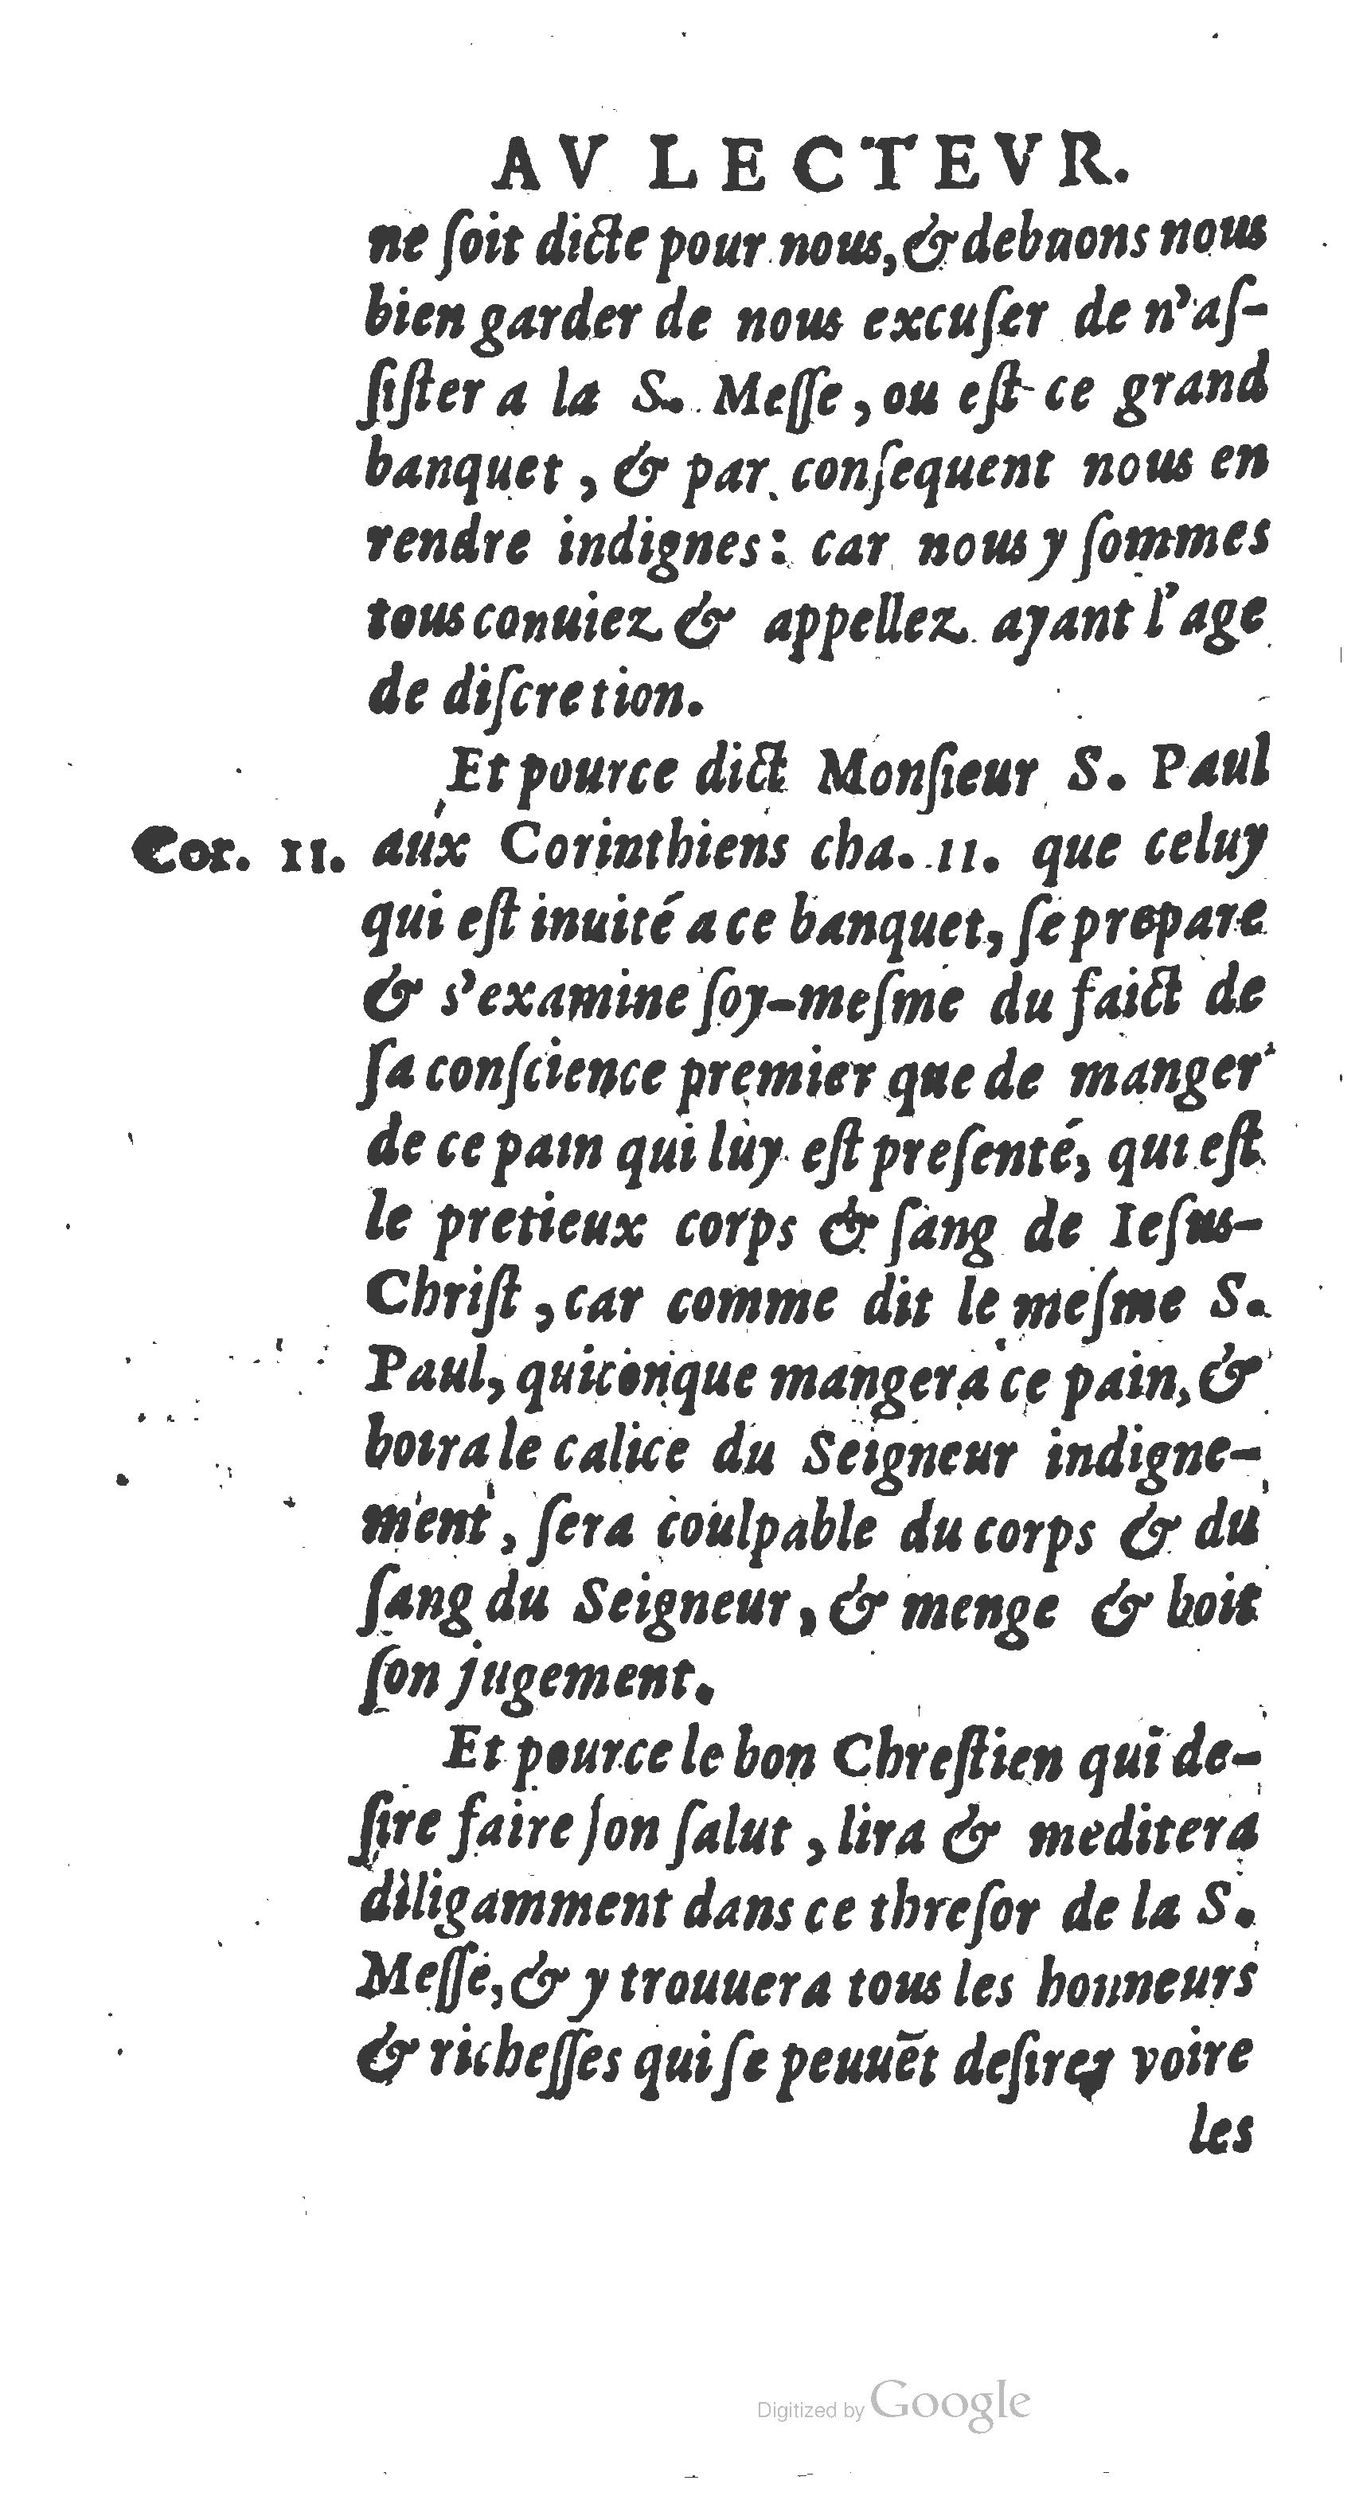 AV LECTEVR.
ne ſoit dicte pour nous, & debuons nous
bien garder de nous excuſer de n'aſ-
ſiſter a la S. Meſſe, ou eſt ce grand
banquet, & par conſequent nous en
rendre indignes: car nous y ſommes
tous conuiez & appellez ayant l'age
de diſcretion.
Et pource dict Monſieur S. Paul
Cor. 11. aux Corinthiens cha. 11. que celuy
qui eſt inuité a ce banquet, ſe prepare
& s'examine ſoy-meſme du faict de
ſa conſcience premier que de manger
de ce pain qui luy eſt preſenté, qui eſt
le pretieux corps & ſang de Ieſus-
Chriſt, car comme dit le meſme S.
Paul, quiconque mangera ce pain, &
boira le calice du Seigneur indigne-
ment, ſera coulpable du corps & du
ſang du Seigneur, & menge & boit
ſon jugement.
Et pource le bon Chreſtien qui de-
ſire faire ſon ſalut, lira & meditera
diligamment dans ce threſor de la S.
Meſſe, & y trouuera tous les honneurs
& richeſſes qui ſe peuuēt deſirer voire
les
Digitized by Google